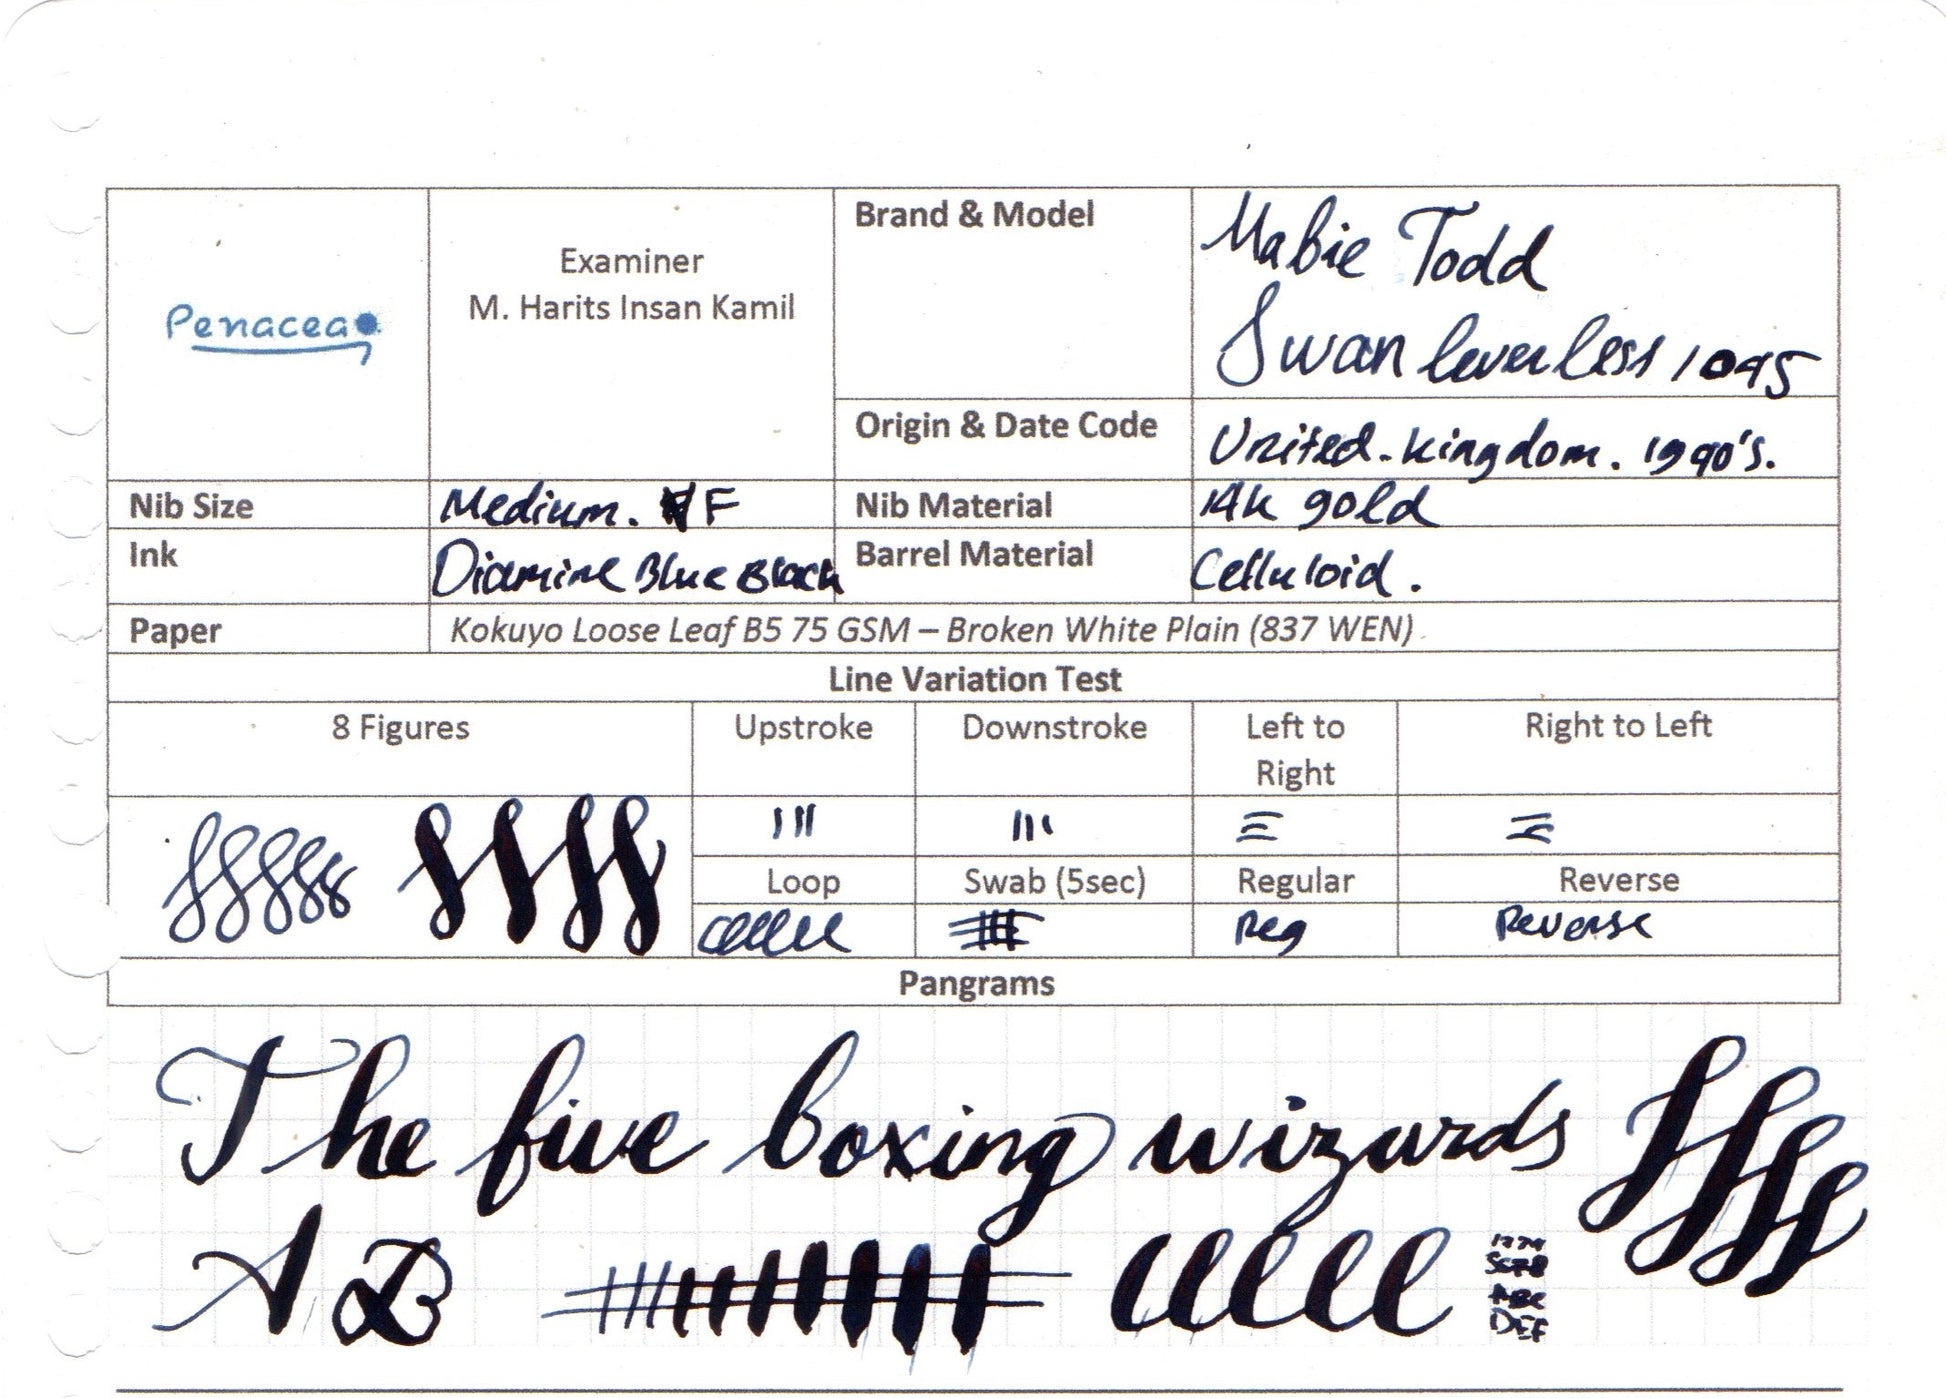 Penacea
Examiner
M. Harits Insan Kamil
Brand & Model
Mabie Todd
Swan leverless 1045
Origin & Date Code
United-Kingdom. 1940's.
Nib Size
Medium. F
Nib Material
14k gold
Ink
Diamine Blue Black
Barrel Material
Celluloid.
Paper
Kokuyo Loose Leaf B5 75 GSM – Broken White Plain (837 WEN)
Line Variation Test
8 Figures
Upstroke
Downstroke
Left to
Right
Right to Left
Loop
Swab (5sec)
Regular
Reverse
Reg
Reverse
Pangrams
The five boxing wizards
A B
ABC
DEF